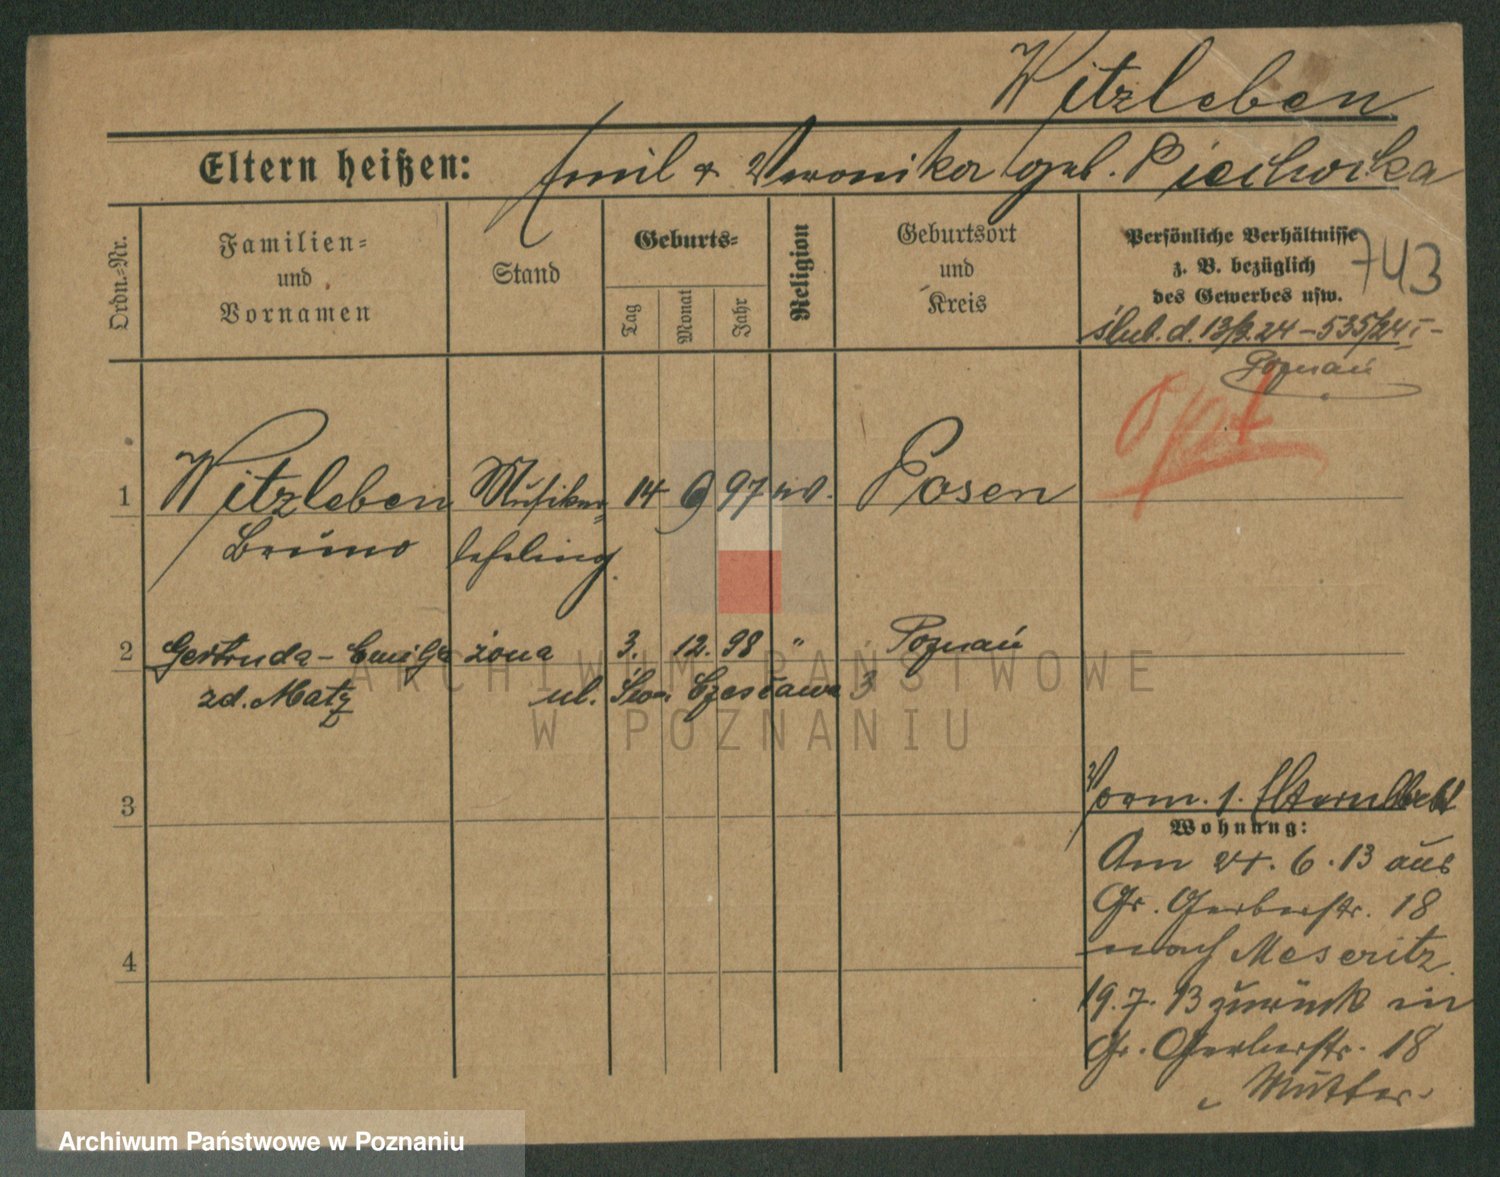 Witzleben
Eltern heißen: Emil & Veronika geb. Piechocka
Ordn.=Nr.
Familien=
und
Vornamen
Stand
Geburts=
Tag
Monat
Jahr
Religion
Geburtsort
und
Kreis
Persönliche Verhältnisse
z. B. bezüglich
des Gewerbes usw.
743
ślub. d. 13/9.24 – 535/24 I –
Poznań
Opt
1 Witzleben Musiker 14 9 97 ev. Posen
Bruno lehrling
2 Gertruda – Emilja żona 3. 12. 98 " Poznań
zd. Matz ul. Św. Czesława 3
3
Vorm. s. Elternblatt
Wohnung:
Am 24. 6. 13 aus
Gr. Gerberstr. 18
nach Meseritz
4
19. 7. 13 zurück in
Gr. Gerberstr. 18
Mutter
ARCHIWUM PAŃSTWOWE
W POZNANIU
Archiwum Państwowe w Poznaniu